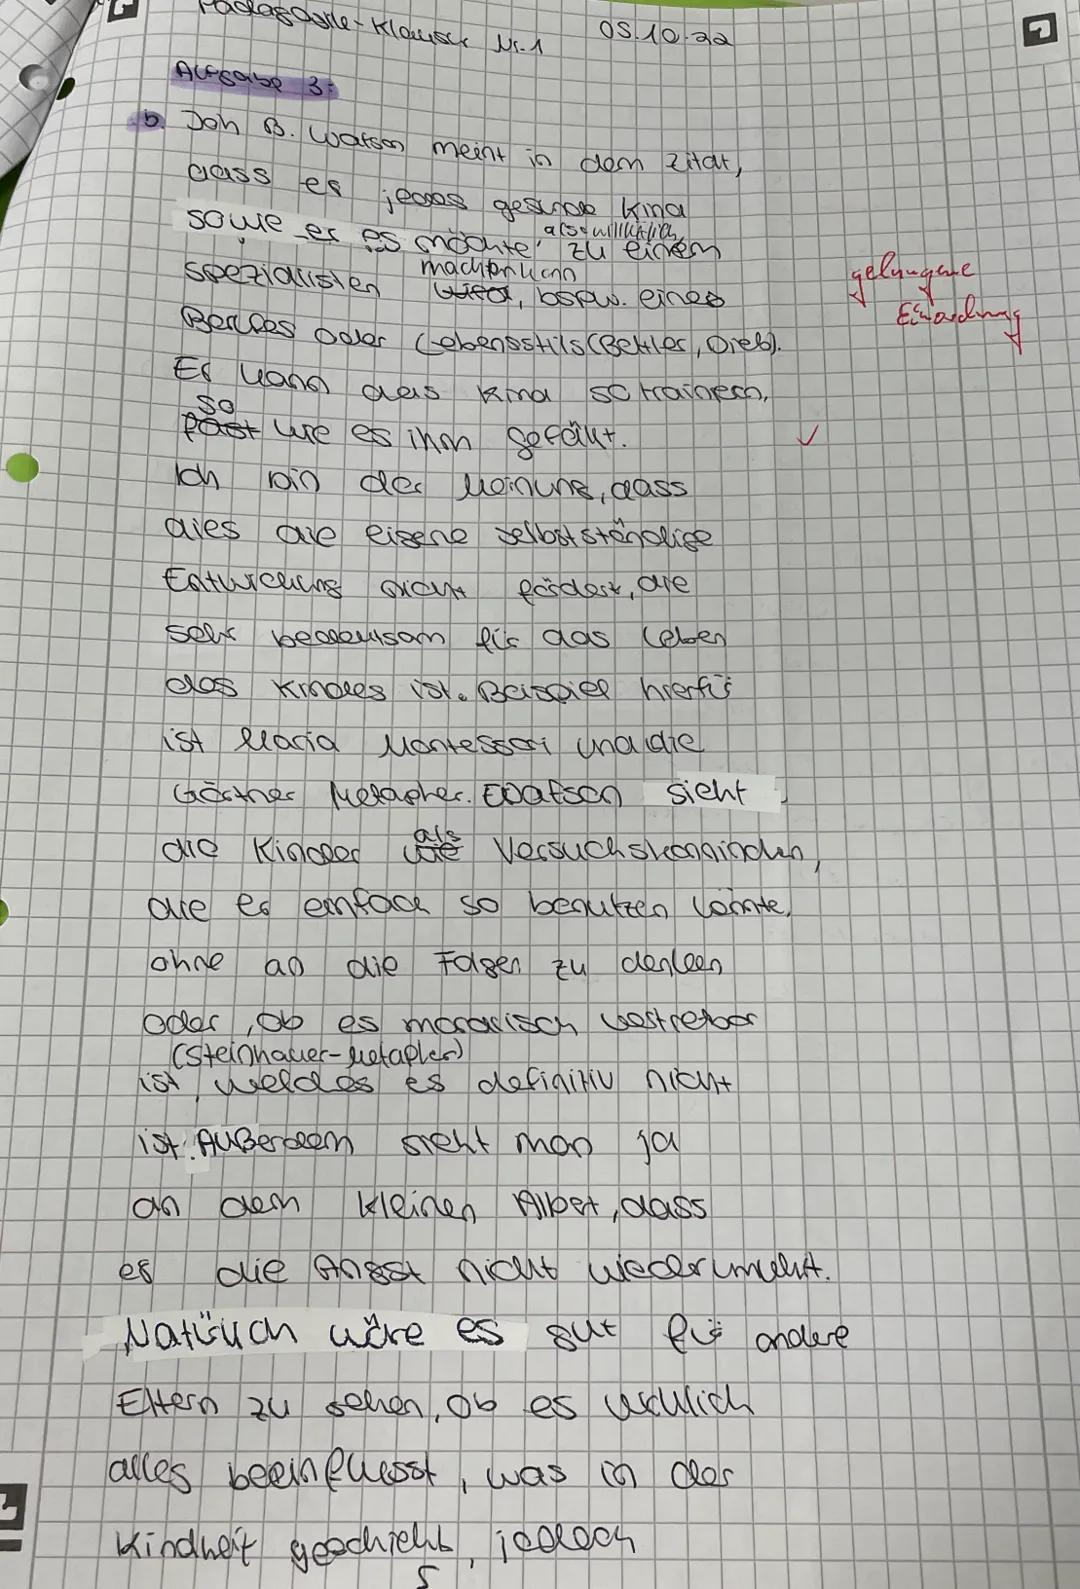 Pädagogik-Klausur Nr.1 05.10.22
Aufgabe 3:
b. Joh B. Watson meint in dem Zitat,
dass er jedes gesunde Kind
sowie er es möchte, also willkürlich, zu einem
Spezialisten machen kann, bspw. eines
gelungene
Einordnung
Berufes oder Lebensstils (Bettler, Dieb).
Er kann das Kind so trainieren,
so wie es ihm gefällt. ✓
Ich bin der Meinung, dass
dies die eigene selbstständige
Entwicklung nicht fördert, die
sehr bedeutsam für das Leben
des Kindes ist. Beispiel hierfür
ist Maria Montessori und die
Gärtner Metapher. Watson sieht
die Kinder als Versuchskanninchen,
die er einfach so benutzen könnte,
ohne an die Folgen zu denken
oder, ob es moralisch vertretbar
(Steinhauer-Metapher)
ist, welches es definitiv nicht
ist. Außerdem sieht man ja
an dem kleinen Albert, dass
er die Angst nicht
Natürlich wäre es gut für andere
Eltern zu sehen, ob es wirklich
alles beeinflusst, was in der
Kindheit geschieht, jedoch
5